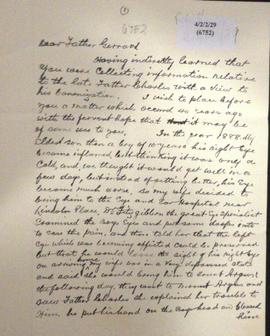 (1)
6752
4/2/2/29
(6752)
Dear Father Gerrard
Having indirectly learned that
you were collecting information relative
to the late Father Charles with a view to
his Canonization. I wish to place before
you a matter which occured 40 years ago
with the fervent hope that it may be
of some use to you. In the year 1888 My
Eldest son then a boy of 10 years his right Eye
became inflamed but thinking it was only a
Cold, and we thought it would get well in a
few days, but instead of getting better, his Eye
became much worse, so my wife decided to
bring him to the Eye and Ear Hospital near
Lincoln Place, Dr Fitzgibbon the great Eye Specialist
Examined the boys Eye and put some drops into
to ease the pain, and then told her that the left
Eye which was becoming effected could be preserved
but that he would loose the sight of his right Eye
on arriving home my wife was in a very depressed state
and said she would bring him to Mount Argus
the following day, they went to Mount Argus and
saw Father Charles she explained her trouble to
Him he put his hand on the boys head and